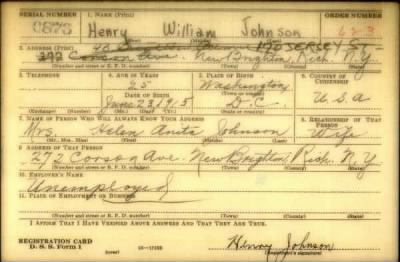 SERIAL NUMBER 1. NAME (Print) ORDER NUMBER
Henry William Johnson 623
(First) (Middle) (Last)
2. ADDRESS (Print) 190 JERSEY ST.
Corson Ave. New Brighton, Rich. N.Y.
(Number and street or R. F. D. number) (Town) (County) (State)
3. TELEPHONE 4. AGE IN YEARS 5. PLACE OF BIRTH 6. COUNTRY OF CITIZENSHIP
25 Washington
DATE OF BIRTH (Town or county)
June 23, 1915 D.C. U.S.A
(Exchange) (Number) (Mo.) (Day) (Yr.) (State or country)
7. NAME OF PERSON WHO WILL ALWAYS KNOW YOUR ADDRESS 8. RELATIONSHIP OF THAT PERSON
Mrs. Helen Anita Johnson Wife
(Mr., Mrs., Miss) (First) (Middle) (Last)
9. ADDRESS OF THAT PERSON
272 Corson Ave. New Brighton, Rich. N.Y
(Number and street or R. F. D. number) (Town) (County) (State)
10. EMPLOYER'S NAME
Unemployed
11. PLACE OF EMPLOYMENT OR BUSINESS
(Number and street or R. F. D. number) (Town) (County) (State)
I AFFIRM THAT I HAVE VERIFIED ABOVE ANSWERS AND THAT THEY ARE TRUE.
REGISTRATION CARD
D. S. S. Form 1 (over) Henry Johnson
(Registrant's signature)